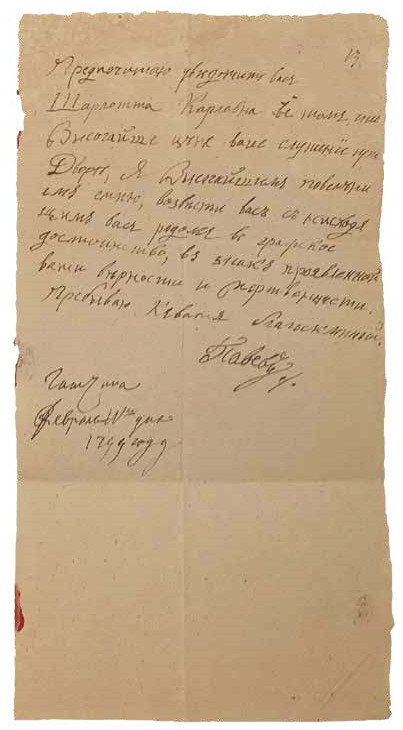 13
Предпочитаю увѣдомить васъ
Шарлотта Карловна въ томъ, что
Высочайше цѣня ваше служенiе при
Дворѣ, Я Высочайшимъ повелѣни
емъ симъ, возвести васъ съ нисходя
щимъ васъ родомъ въ графское
достоинство, въ знакъ проявленной
вами вѣрности и жертвенности.
Пребываю къ вамъ благосклонный.
Павелъ
Гатчина
Февраля 11го дня
1799 году